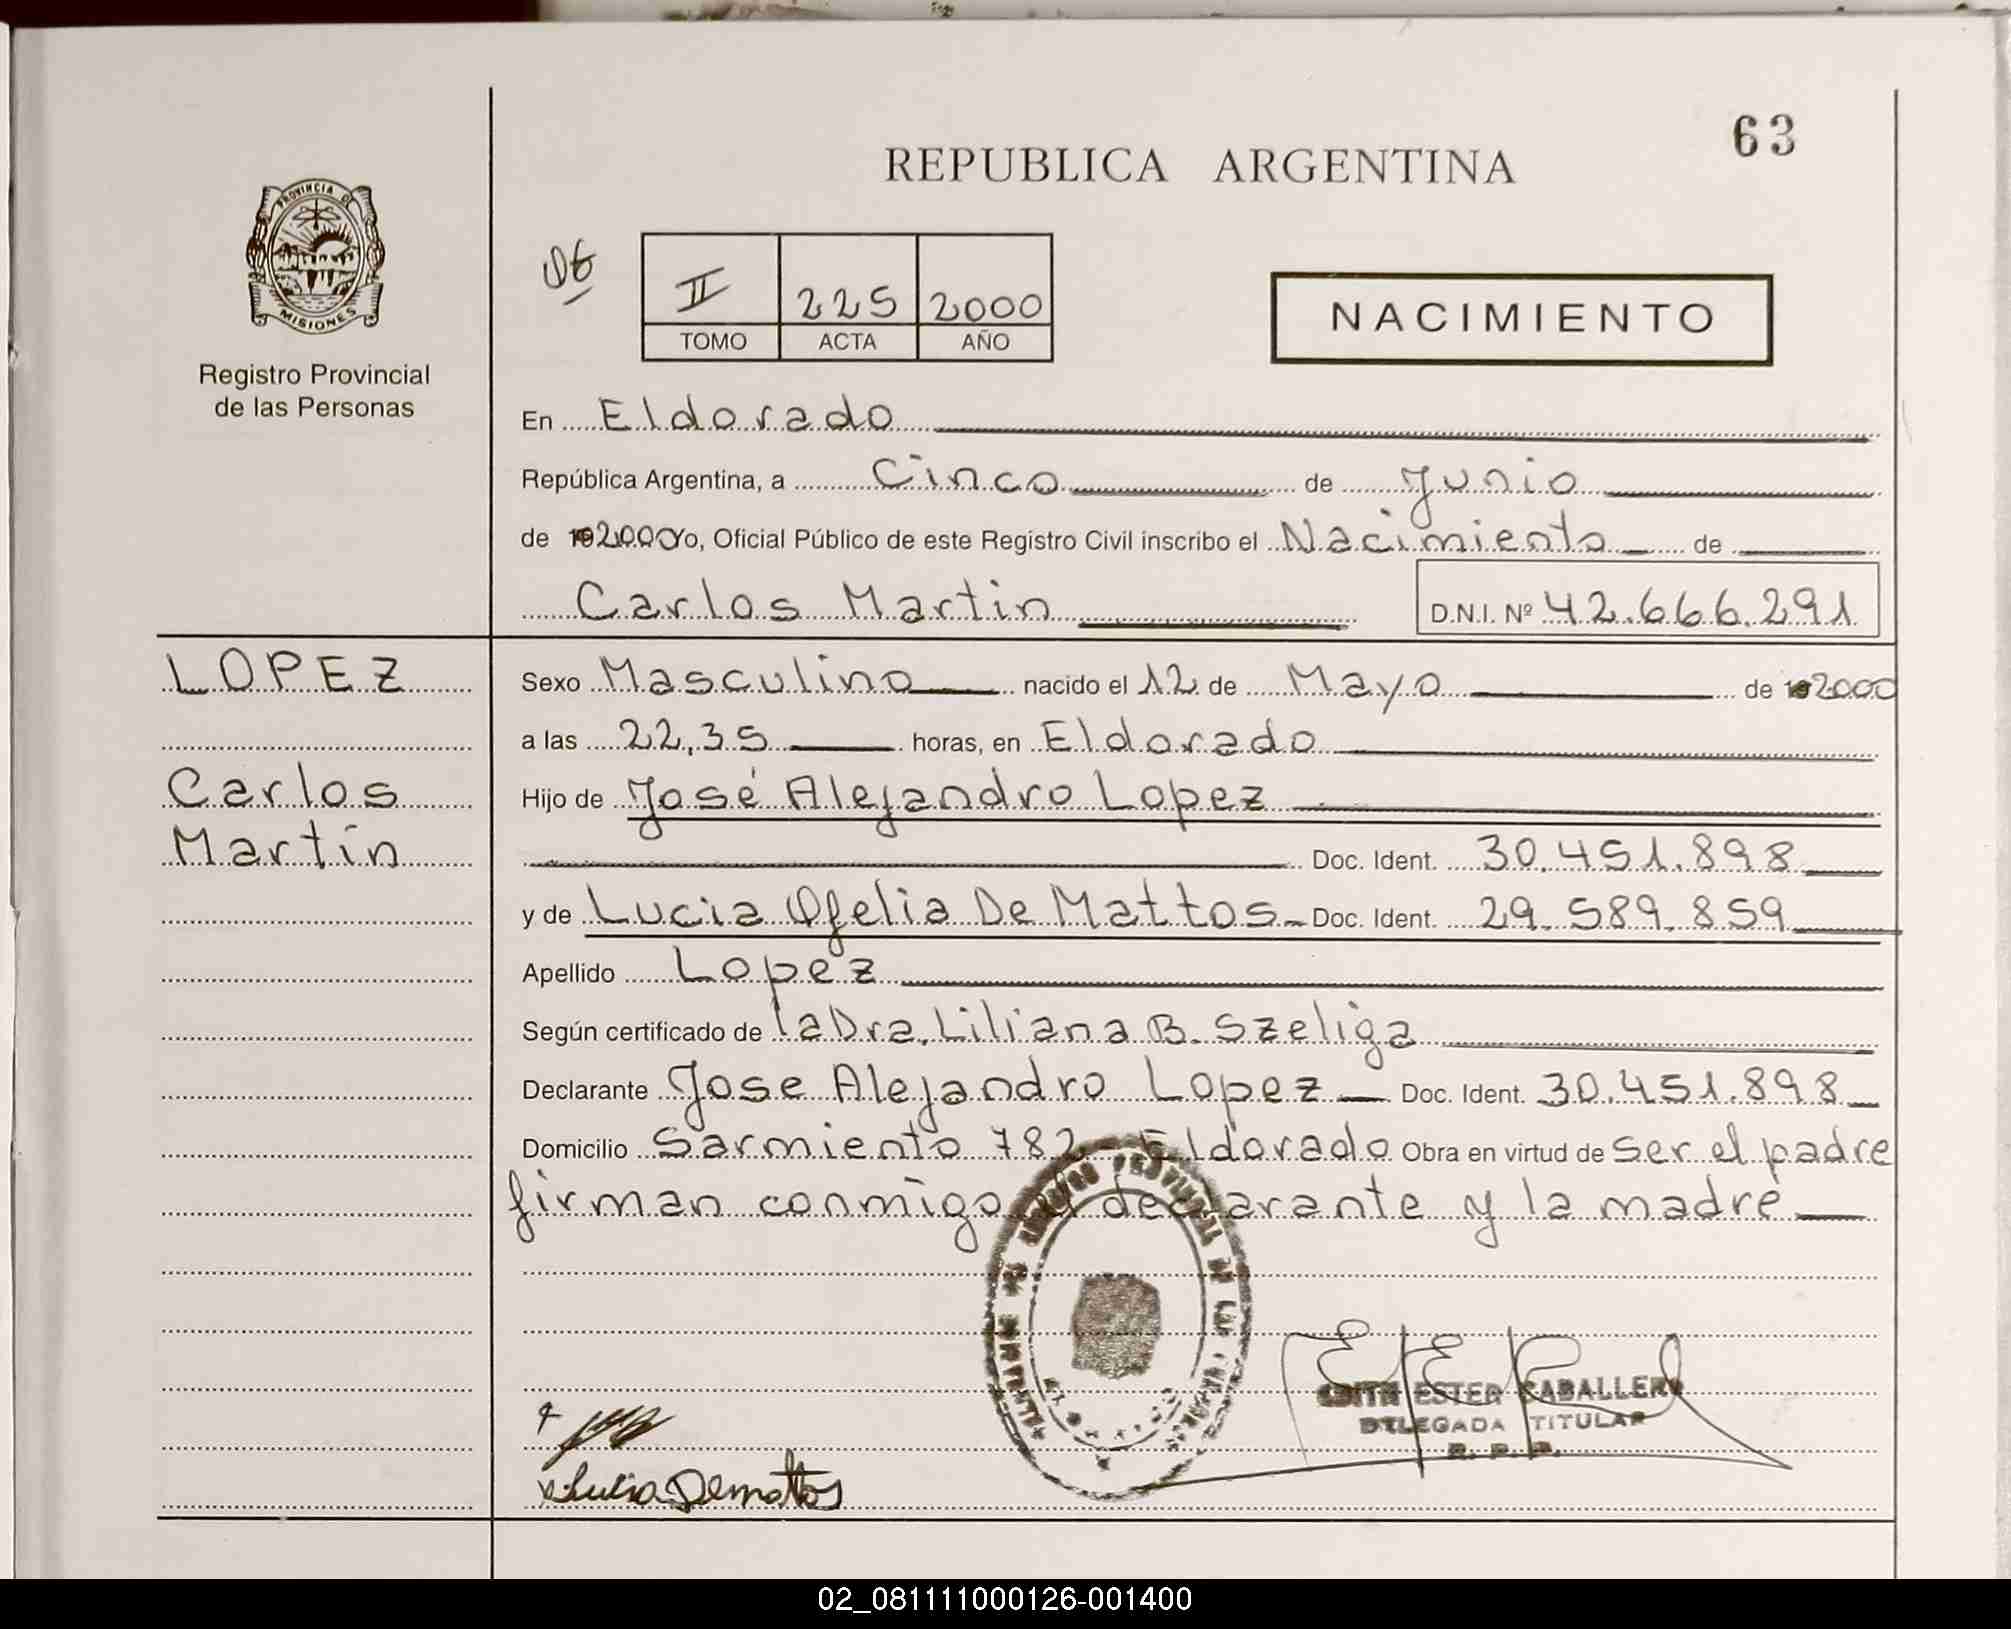 63
REPUBLICA ARGENTINA
PROVINCIA DE
MISIONES
Registro Provincial
de las Personas
II 225 2000
TOMO ACTA AÑO
NACIMIENTO
En Eldorado
República Argentina, a Cinco de Junio
de 2000 Yo, Oficial Público de este Registro Civil inscribo el Nacimiento de
Carlos Martin D.N.I. Nº 42.666.291
LOPEZ
Carlos
Martín
Sexo Masculino nacido el 12 de Mayo de 2000
a las 22,35 horas, en Eldorado
Hijo de José Alejandro Lopez
Doc. Ident. 30.451.898
y de Lucia Ofelia De Mattos Doc. Ident. 29.589.859
Apellido Lopez
Según certificado de la Dra. Liliana B. Szeliga
Declarante Jose Alejandro Lopez Doc. Ident. 30.451.898
Domicilio Sarmiento 782 Eldorado Obra en virtud de ser el padre
firman conmigo el declarante y la madre
EDITH ESTER CABALLERO
DELEGADA TITULAR
R. P. P.
Lucia Demattos
02_081111000126-001400